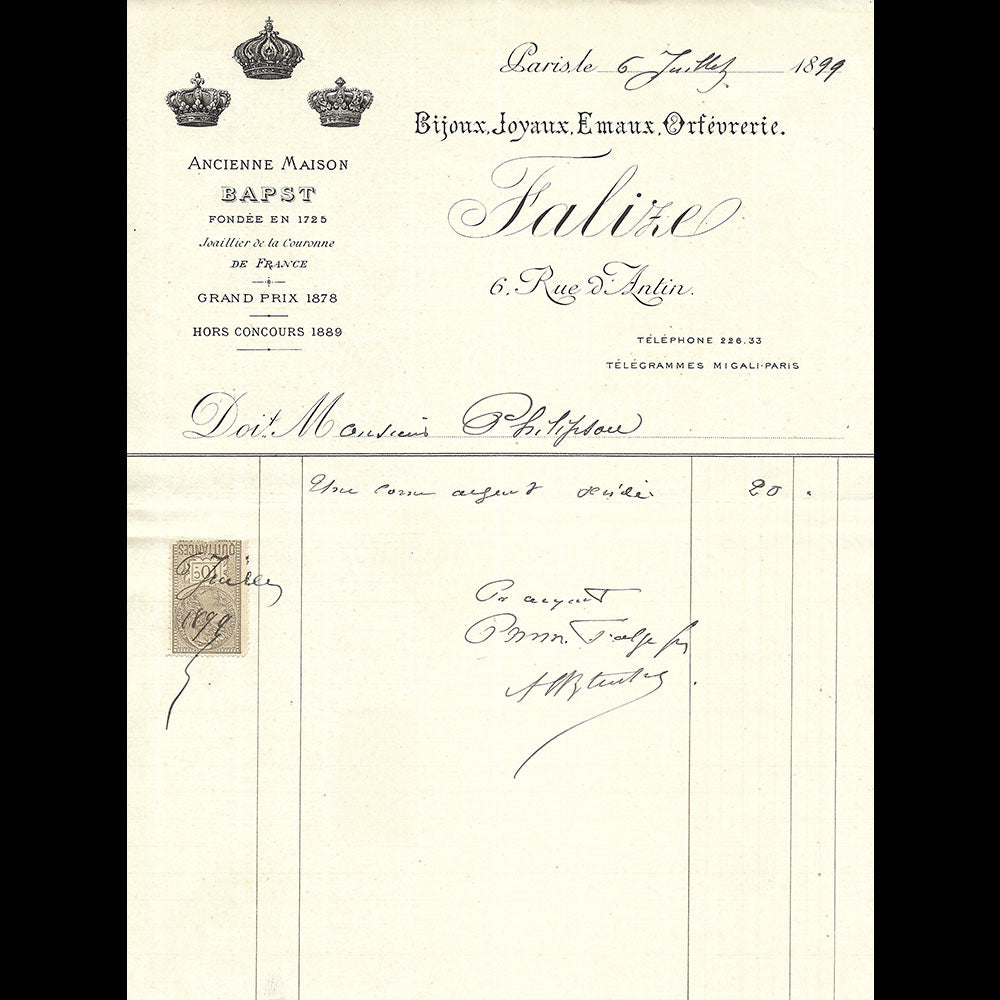 Paris, le 6 Juillet 1899
Bijoux, Joyaux, Emaux, Orfévrerie.
Falize
6, Rue d'Antin.
TÉLÉPHONE 226.33
TÉLÉGRAMMES MIGALI-PARIS
ANCIENNE MAISON
BAPST
FONDÉE EN 1725
Joaillier de la Couronne
DE FRANCE
GRAND PRIX 1878
HORS CONCOURS 1889
Doit Monsieur Philipson
Une argent 20 "
QUITTANCES
10c
6 Juillet
1899
Pr acquit
Falize frs